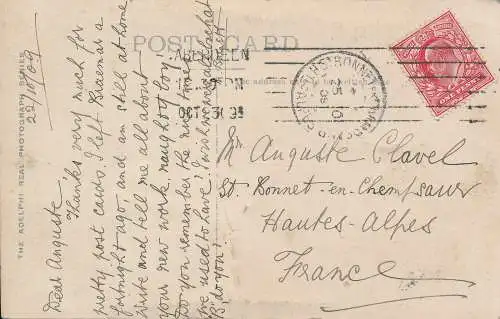 POST CARD
THE ADELPHI REAL PHOTOGRAPH SERIES
22/10/09
Dear Auguste
Thanks very much for
pretty post cards. I left Braemar a
fortnight ago, and am still at home
Write and tell me all about
your new work, naughty boy
Do you remember the nice time
we used to have? I wish we
B. do you?
ABERDEEN
OCT
Mr Auguste Clavel
St. Bonnet-en-Champsaur
Hautes-Alpes
France